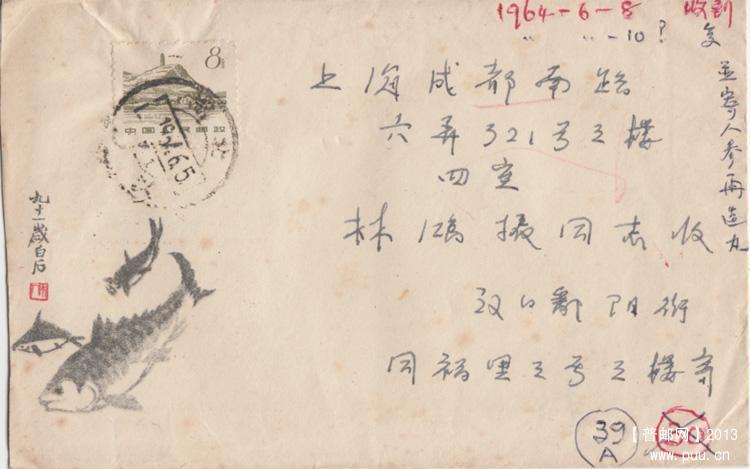 1964-6-8 收到
" " -10? 复
并寄人参再造丸
8分
中国人民邮政
上海成都南路
六弄321号三楼
四室
林鸿 同志收
汉口鄱阳街
同福里三号三楼寄
九十一岁白石
39
A
【普邮网】2013
www.puu.cn